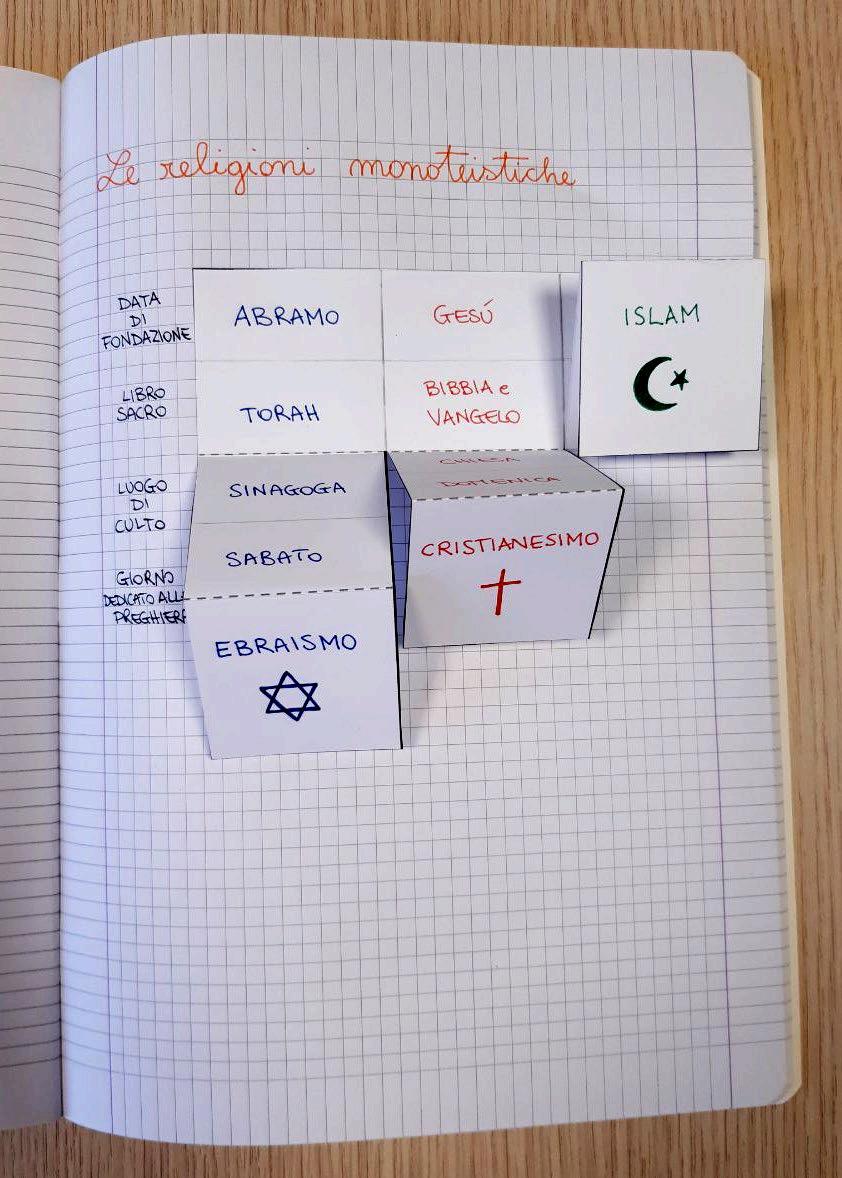 Le religioni monoteistiche
DATA
DI
FONDAZIONE
ABRAMO
GESÚ
ISLAM
LIBRO
SACRO
TORAH
BIBBIA e
VANGELO
LUOGO
DI
CULTO
SINAGOGA
CHIESA
GIORNO
DEDICATO ALLA
PREGHIERA
SABATO
DOMENICA
EBRAISMO
CRISTIANESIMO